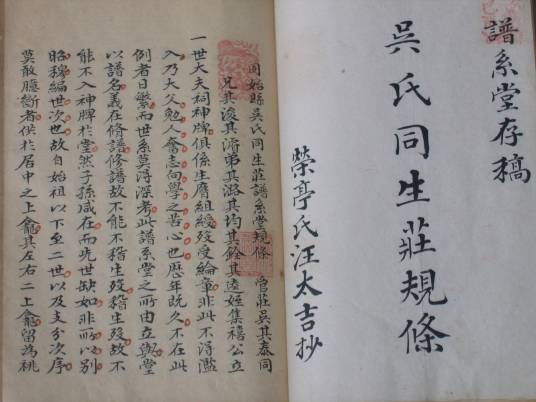 譜系堂存稿
吳氏同生莊規條
榮亭氏汪太吉抄
固始縣吳氏同生莊譜系堂規條 曾莊吳其泰同
兄其浚其濬弟其潞其均其銓其遠姪集禧公立
一世大夫祠神牌俱係生膺組綬歿受綸章非此不得濫
入乃大父勉人奮志向學之苦心也歷年既久不在此
例者日繁而世系莫得深考此譜系堂之所由立與堂
以譜名義在脩譜修譜故不能不稽生歿稽生歿故不
能不入神牌於堂然子孫咸在而先世缺如非所以別
昭穆編世次也故自始祖以下至二世以及支分次序
莫敢臆斷者供於居中之上龕其左右二上龕留為祧